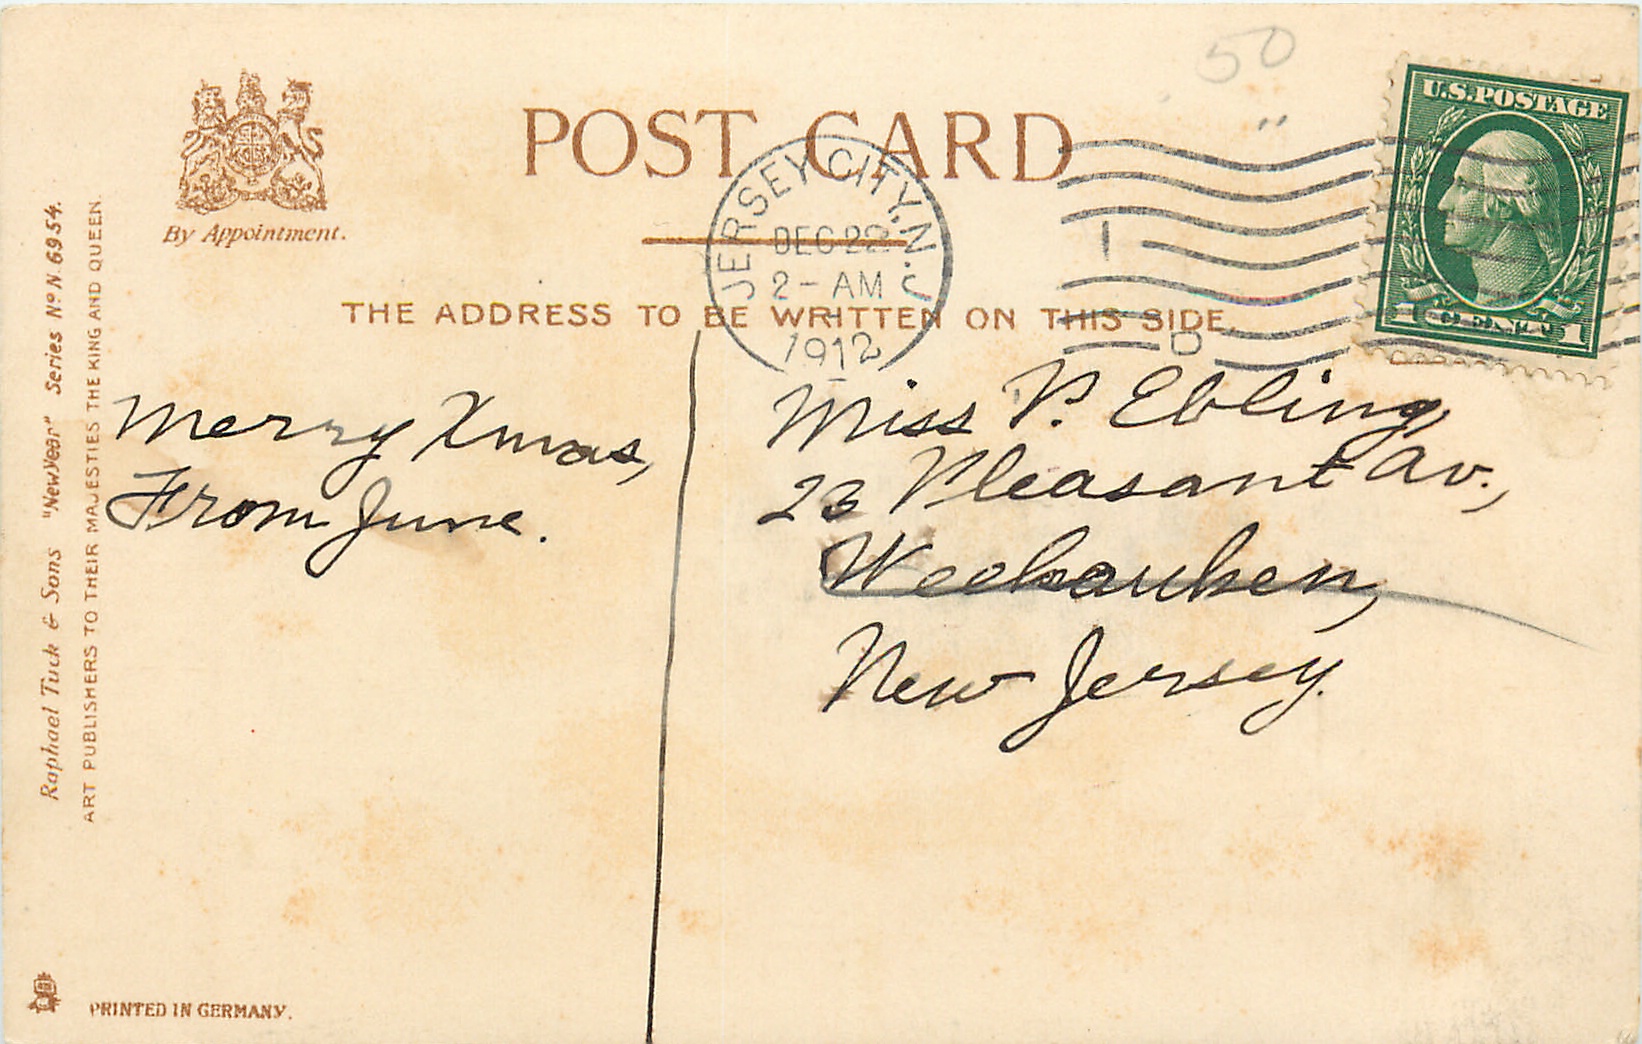 50
U.S.POSTAGE
POST CARD
JERSEY CITY, N.J.
DEC 22
2-AM
1912
By Appointment.
THE ADDRESS TO BE WRITTEN ON THIS SIDE
Merry Xmas,
From June.
Miss P. Ebling,
23 Pleasant Av.,
Weehauken,
New Jersey.
Raphael Tuck & Sons "New Year" Series No N. 6954.
ART PUBLISHERS TO THEIR MAJESTIES THE KING AND QUEEN.
PRINTED IN GERMANY.